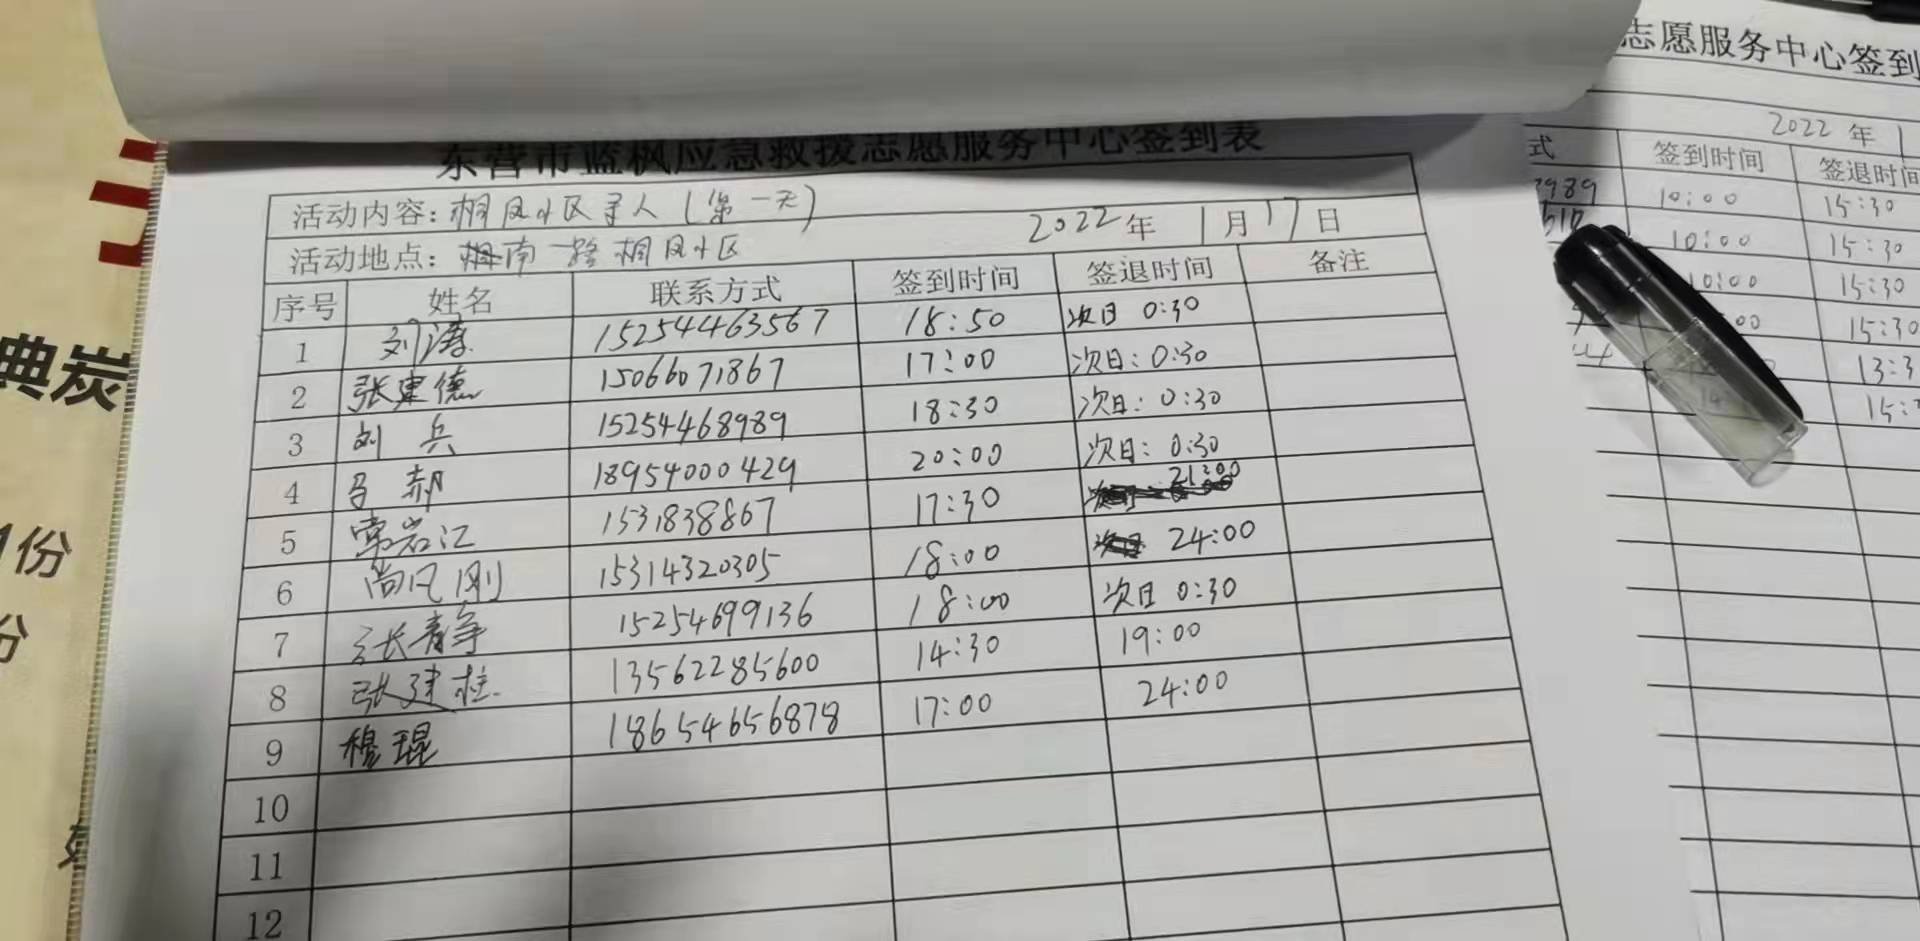 东营市蓝枫应急救援志愿服务中心签到表
活动内容：桐凤小区寻人（第一天）
2022年1月17日
活动地点：南一路桐凤小区
序号 姓名 联系方式 签到时间 签退时间 备注
1 刘涛 15254463567 18:50 次日 0:30
2 张建德 15066071867 17:00 次日：0:30
3 刘兵 15254468989 18:30 次日：0:30
4 吕郝 18954000429 20:00 次日：0:30
5 常岩江 1531838867 17:30 21:00
6 尚凡刚 15314320305 18:00 24:00
7 张青争 15254699136 18:00 次日 0:30
8 张建柱 13562285600 14:30 19:00
9 穆琨 18654656878 17:00 24:00
10
11
12
志愿服务中心签到
2022年1
式 签到时间 签退时间
8989 10:00 15:30
10:00 15:30
10:00 15:30
00 15:30
13:3
15:
典炭
1份
份